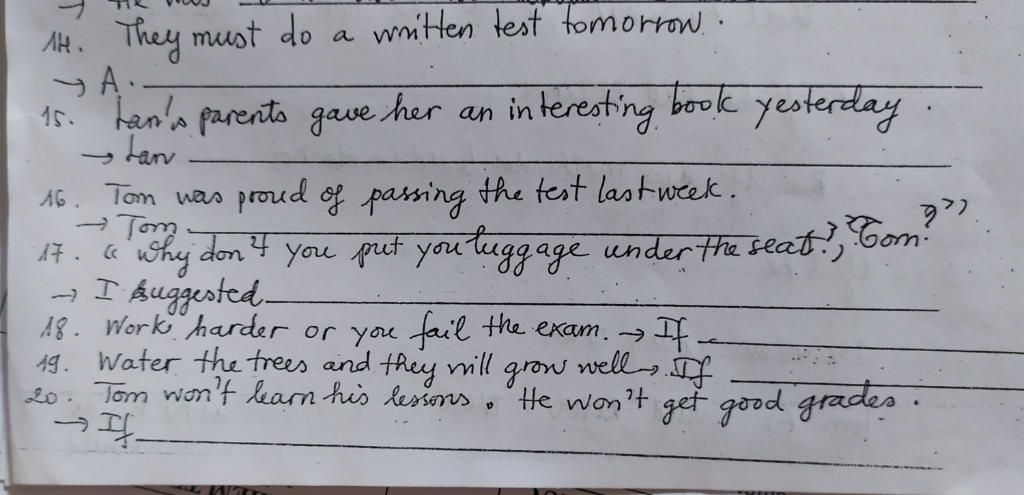 14. They must do a written test tomorrow.
→ A.
15. Lan's parents gave her an interesting book yesterday.
→ Lan
16. Tom was proud of passing the test last week.
→ Tom
17. " Why don't you put you luggage under the seat?, Tom?"
→ I suggested
18. Work harder or you fail the exam. → If
19. Water the trees and they will grow well → If
20. Tom won't learn his lessons. He won't get good grades.
→ If